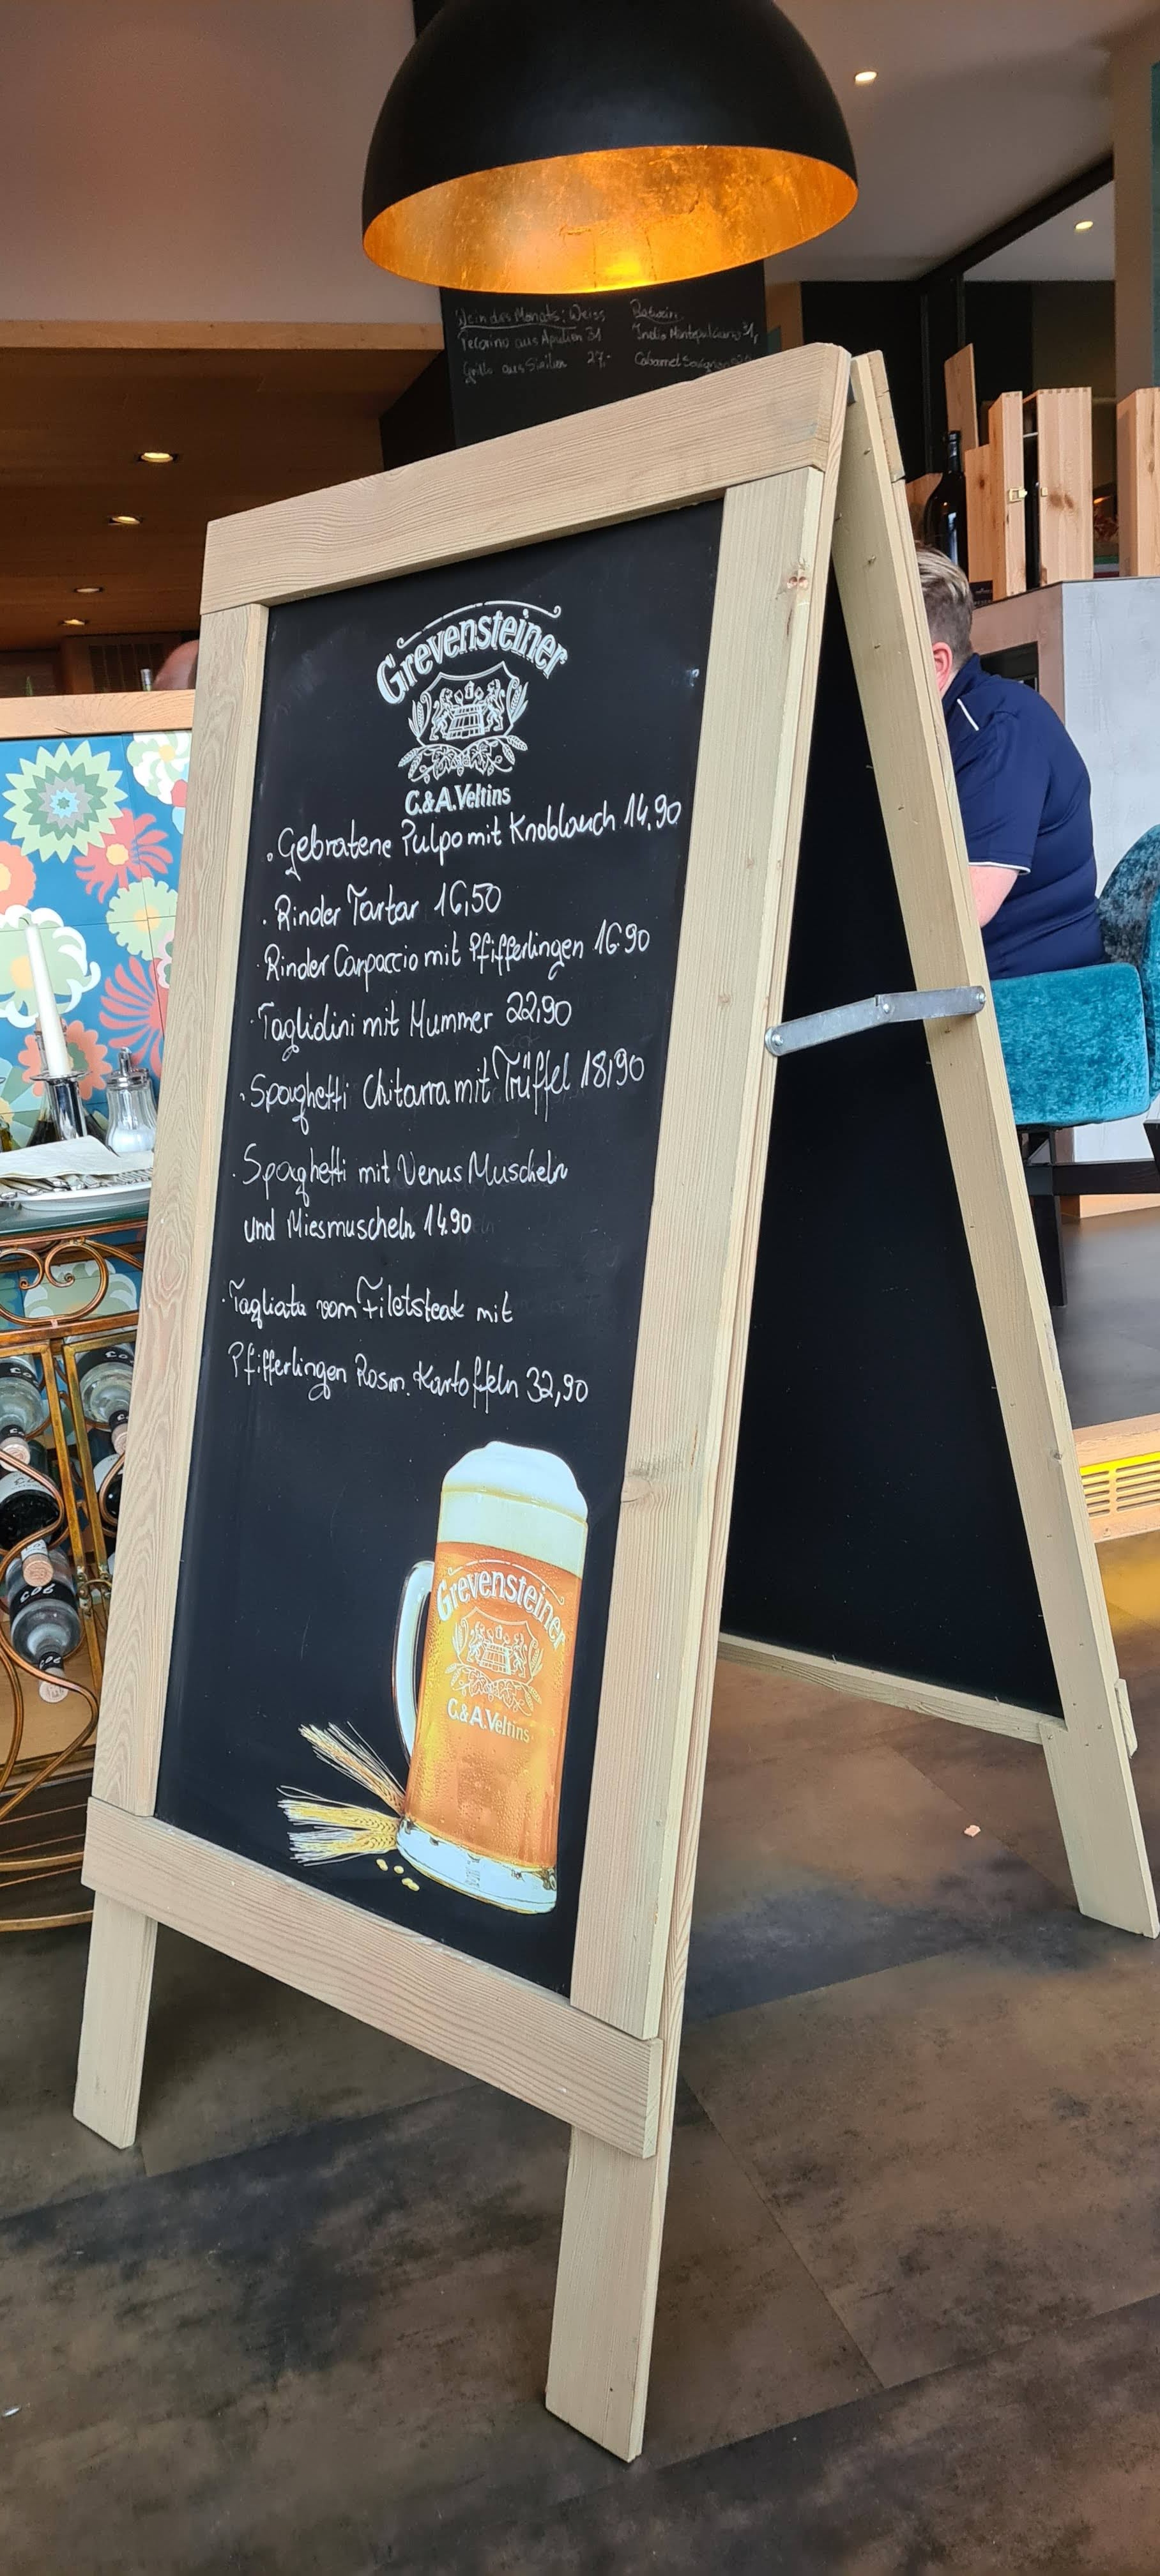 Wein des Monats: Weiss
Pecorino aus Apulien 31
Grillo aus Sizilien 27,-
Rotwein
Indio Montepulciano 31,
Cabernet Sauvignon
Grevensteiner
C.&A.Veltins
. Gebratene Pulpo mit Knoblauch 14,90
. Rinder Tartar 16,50
· Rinder Carpaccio mit Pfifferlingen 16 90
· Taglidini mit Hummer 22,90
· Spaghetti Chitarra mit Trüffel 18,90
· Spaghetti mit Venus Muscheln
und Miesmuscheln 14.90
· Tagliata vom Filetsteak mit
Pfifferlingen Rosm. Kartoffeln 32,90
Grevensteiner
C.&A.Veltins